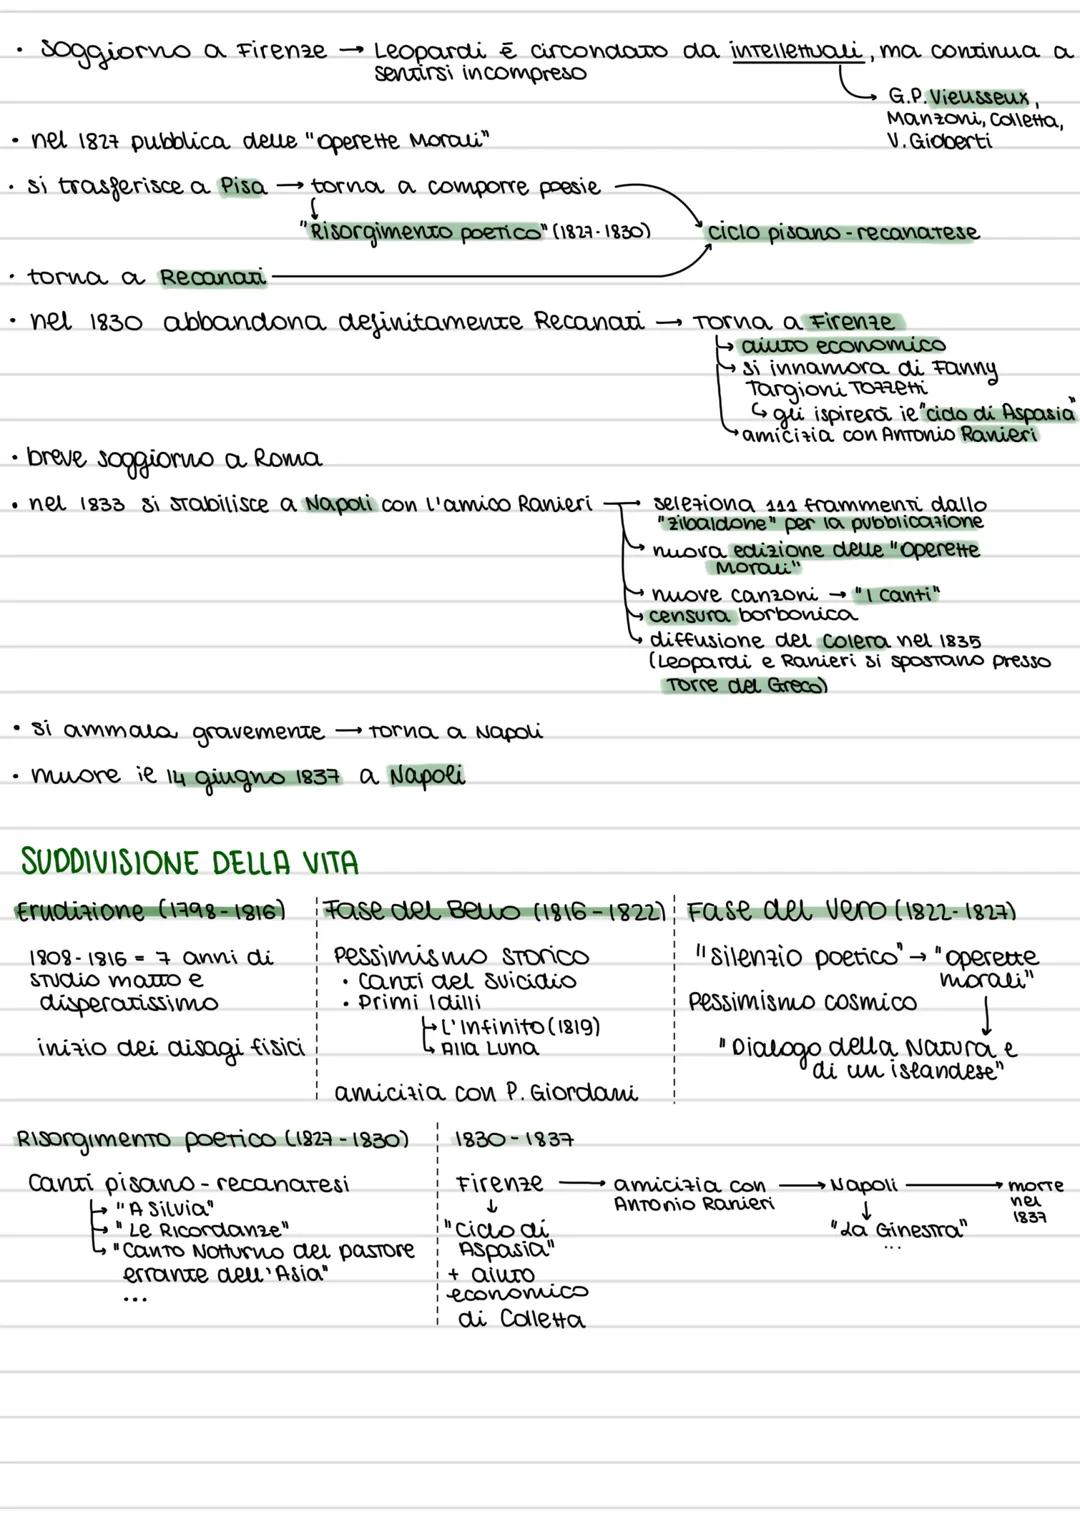 • soggiorno a Firenze → Leopardi è circondato da intellettuali, ma continua a
sentirsi incompreso
G.P. Vieusseux,
Manzoni, Colletta,
V. Gioberti
• nel 1827 pubblica delle "Operette Morali"
• si trasferisce a Pisa → torna a comporre poesie
"Risorgimento poetico" (1827-1830)
ciclo pisano-recanatese
• torna a Recanati
• nel 1830 abbandona definitamente Recanati → torna a Firenze
→ aiuto economico
→ si innamora di Fanny
Targioni Tozzetti
↳ gli ispirerà il "ciclo di Aspasia"
→ amicizia con Antonio Ranieri
• breve soggiorno a Roma
• nel 1833 si stabilisce a Napoli con l'amico Ranieri → seleziona 111 frammenti dallo
"Zibaldone" per la pubblicazione
→ nuova edizione delle "Operette
Morali"
→ nuove canzoni → "I canti"
→ censura borbonica
→ diffusione del Colera nel 1835
(Leopardi e Ranieri si spostano presso
Torre del Greco)
• si ammala gravemente → torna a Napoli
• muore il 14 giugno 1837 a Napoli
SUDDIVISIONE DELLA VITA
Erudizione (1798-1816)
1808-1816 = 7 anni di
studio matto e
disperatissimo
inizio dei disagi fisici
Fase del Bello (1816-1822)
Pessimismo storico
• Canti del suicidio
• Primi Idilli
→ L'Infinito (1819)
→ Alla Luna
amicizia con P. Giordani
Fase del Vero (1822-1827)
"Silenzio poetico" → "operette
morali"
Pessimismo cosmico
"Dialogo della Natura e
di un islandese"
Risorgimento poetico (1827-1830)
Canti pisano-recanatesi
→ "A Silvia"
→ "Le Ricordanze"
→ "Canto Notturno del pastore
errante dell'Asia"
...
1830-1837
Firenze → amicizia con → Napoli → morte
Antonio Ranieri
nel
1837
"Ciclo di
Aspasia"
+ aiuto
economico
di Colletta
"La Ginestra"
...